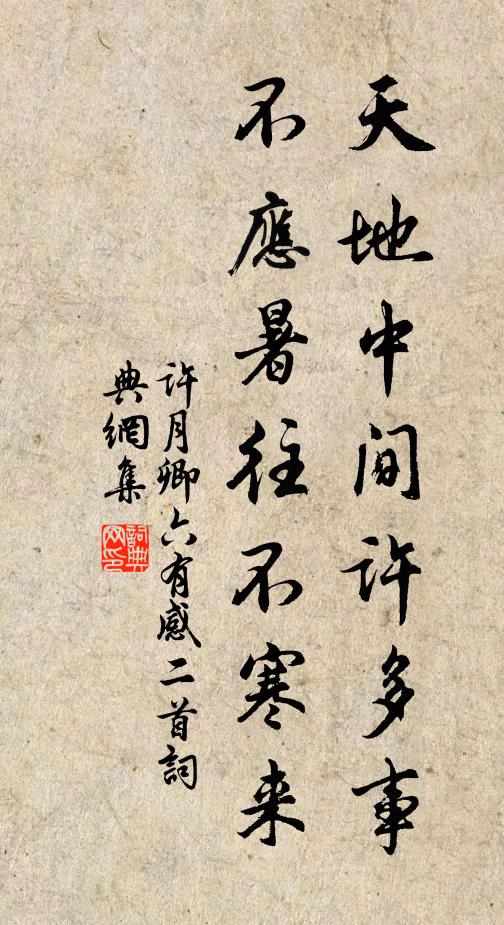 天地中間許多事
不應暑往不寒来
許月卿六有感二首詞
典網集
詞典
网印